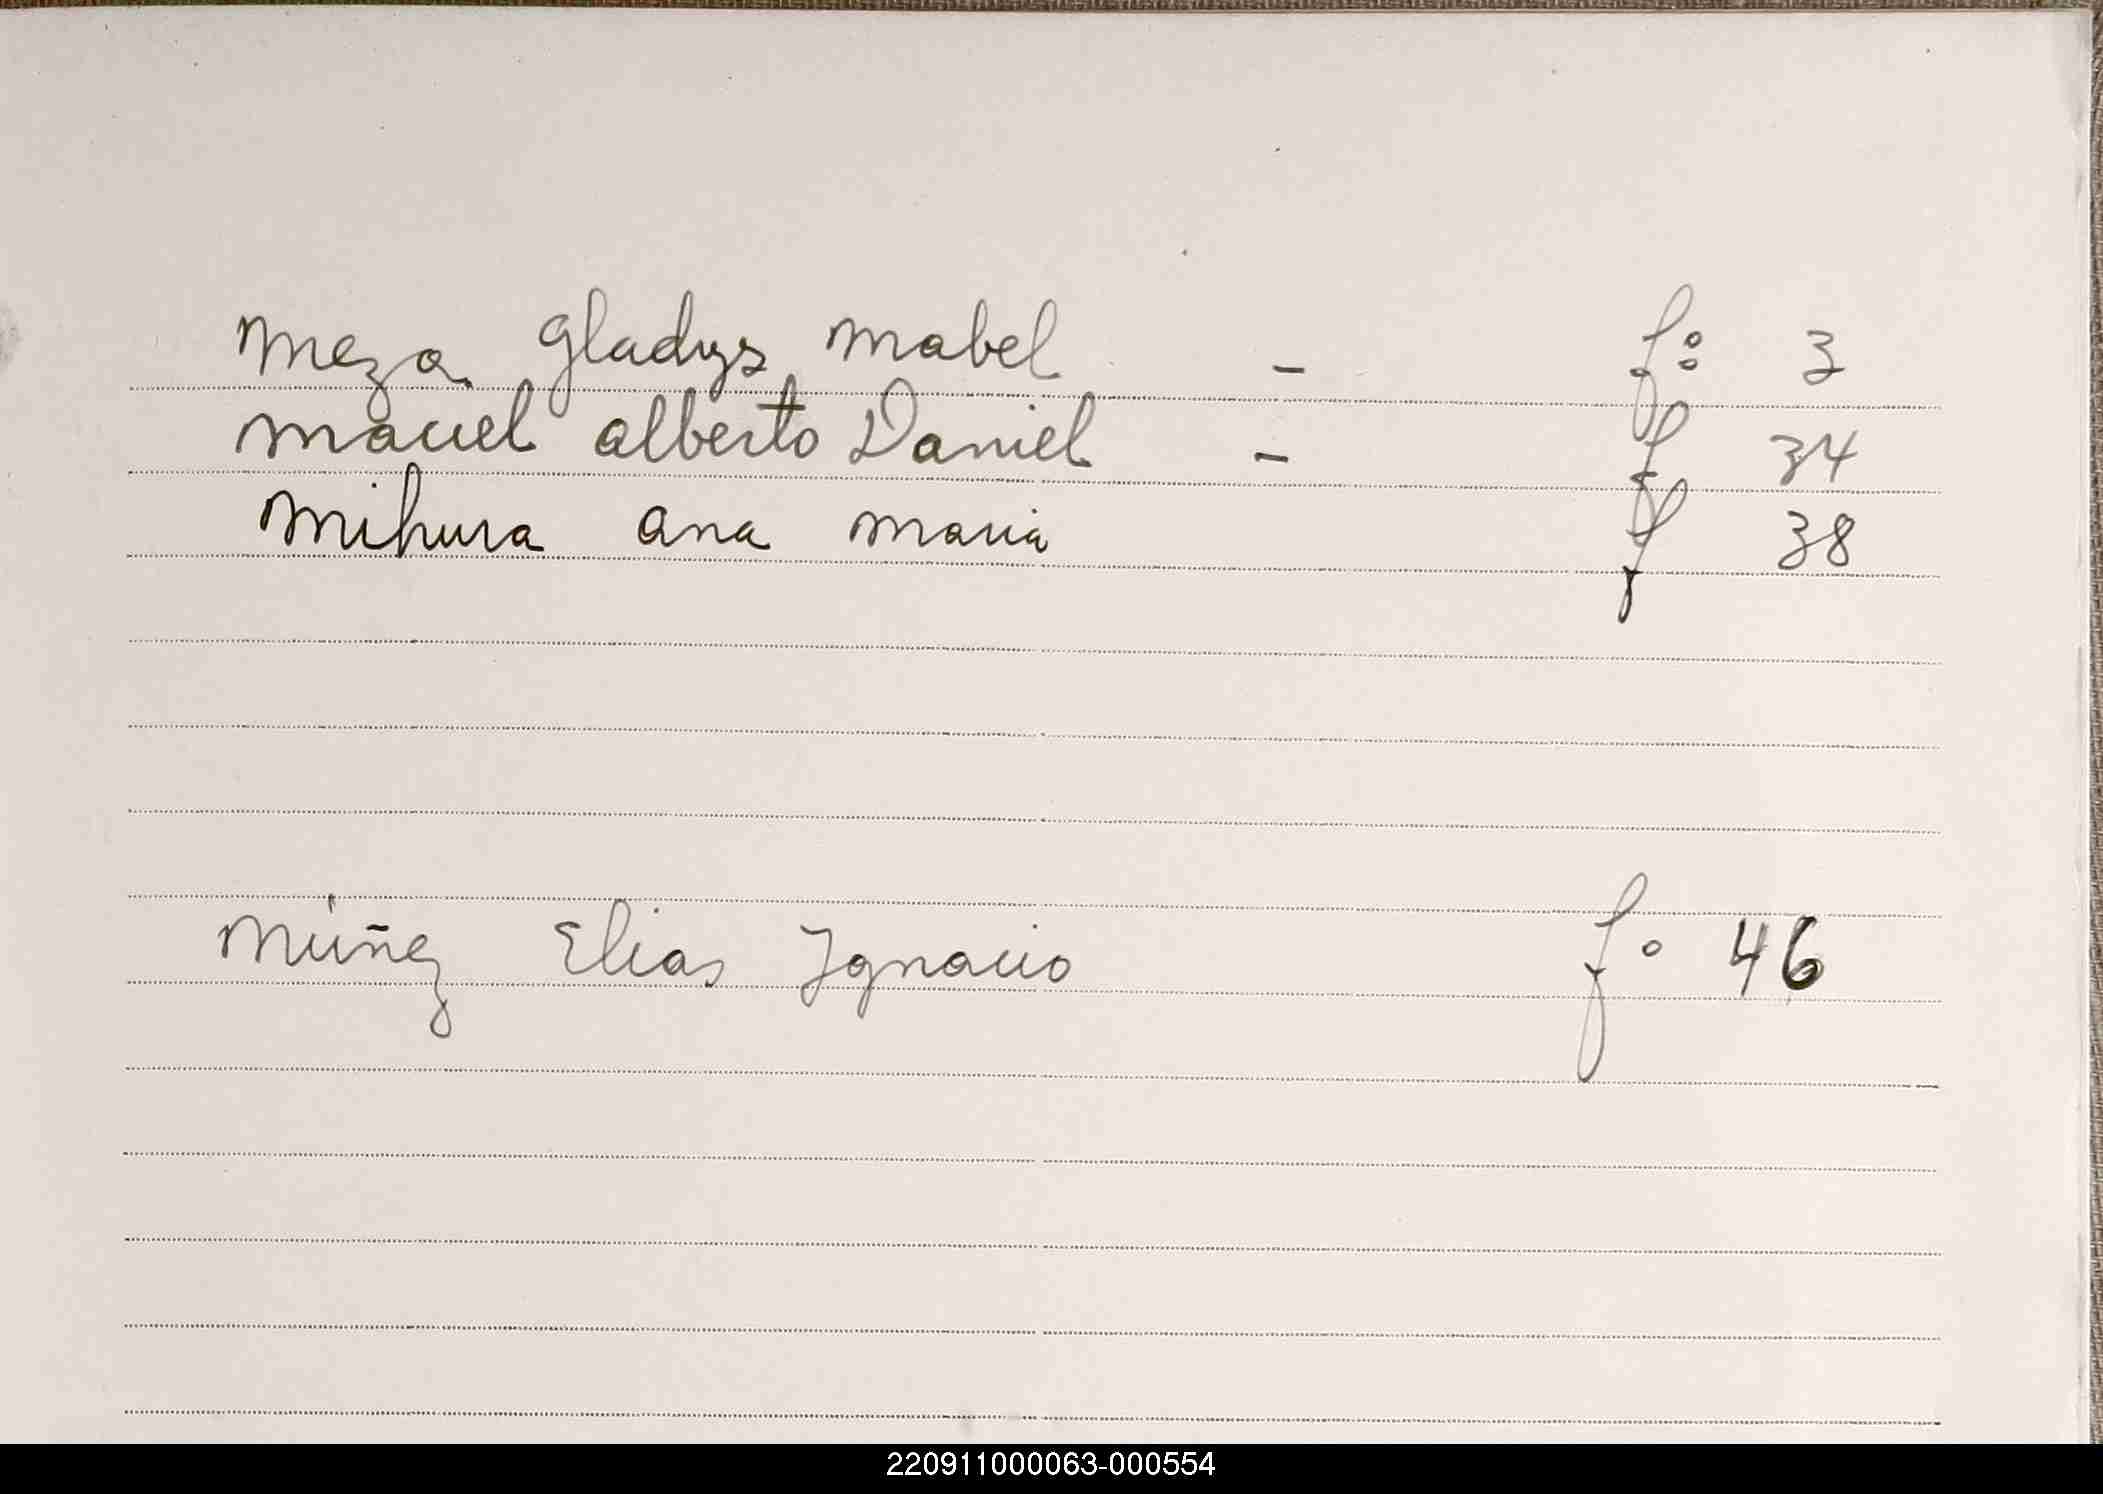 Meza Gladys Mabel - fº: 3
Maciel Alberto Daniel - f 34
Mihura Ana Maria f 38
Múñez Elias Ignacio fº 46
220911000063-000554